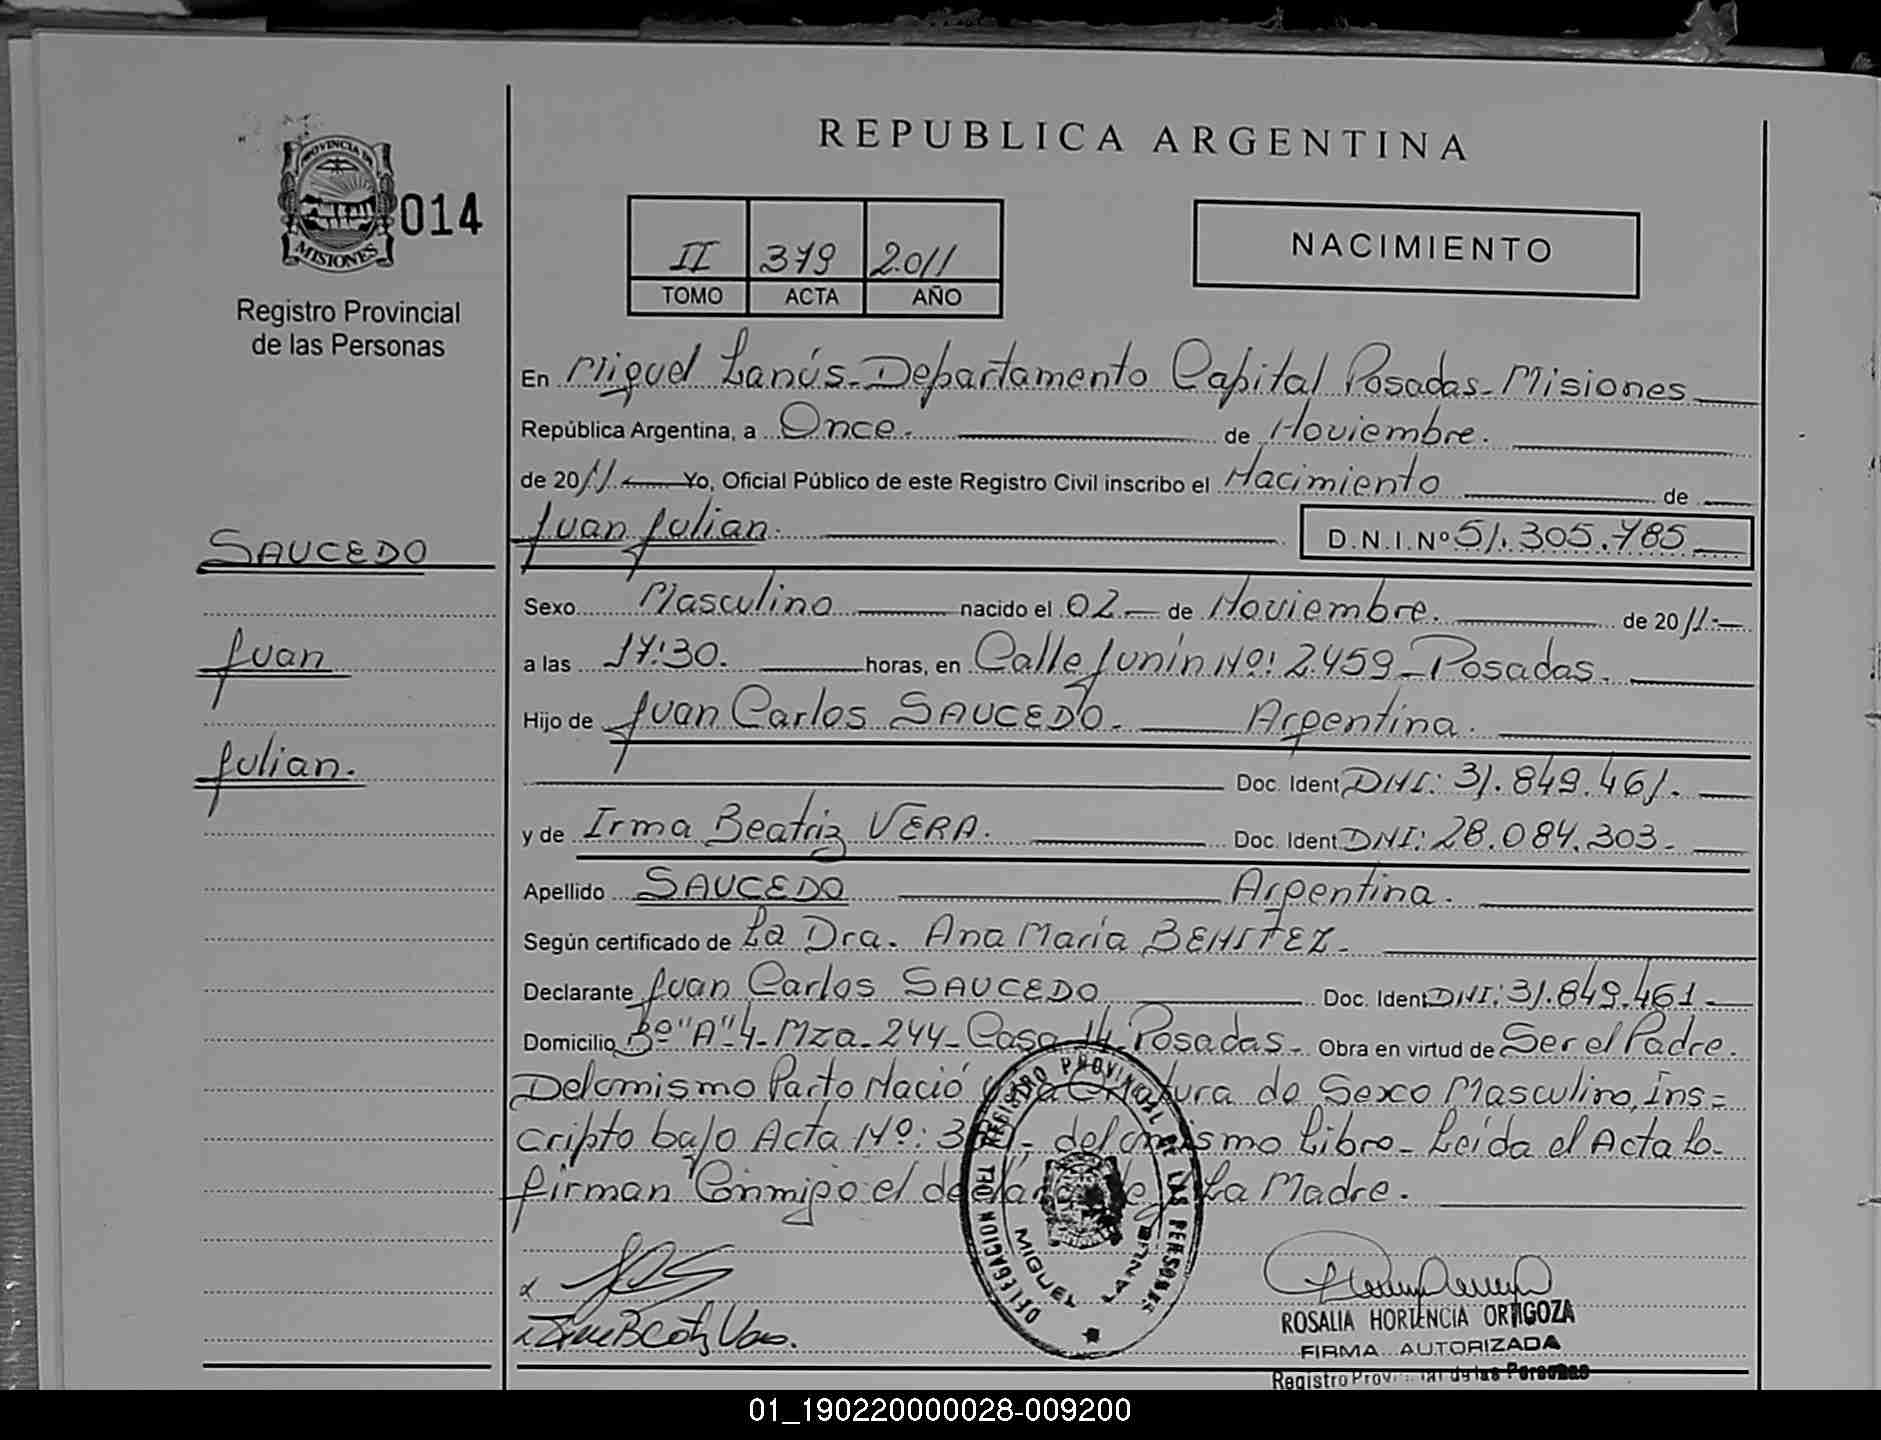 REPUBLICA ARGENTINA
PROVINCIA DE
MISIONES
014
Registro Provincial
de las Personas
II 379 2.011
TOMO ACTA AÑO
NACIMIENTO
En Miguel Lanús-Departamento Capital Posadas-Misiones
República Argentina, a Once. de Noviembre.
de 2011 Yo, Oficial Público de este Registro Civil inscribo el Nacimiento de
Juan Julian. D.N.I.Nº 51.305.785
SAUCEDO
Juan
Julian.
Sexo Masculino nacido el 02 de Noviembre. de 2011.
a las 17:30. horas, en Calle Junín Nº: 2.459-Posadas.
Hijo de Juan Carlos SAUCEDO. Argentina.
Doc. Ident DNI: 31.849.461.
y de Irma Beatriz VERA. Doc. Ident DNI: 28.084.303.
Apellido SAUCEDO Argentina.
Según certificado de La Dra. Ana María BENITEZ.
Declarante Juan Carlos SAUCEDO Doc. Ident DNI: 31.849.461
Domicilio Bº "A"4-Mza-244-Casa 14 Posadas- Obra en virtud de Ser el Padre.
Del mismo Parto Nació de Sexo Masculino, Ins=
cripto bajo Acta Nº: del mismo Libro- Leída el Acta la
firman Conmigo el La Madre.
DELEGACION DEL REGISTRO PROVINCIAL DE LAS PERSONAS
MIGUEL LANUS
ROSALIA HORTENCIA ORTIGOZA
FIRMA AUTORIZADA
Registro Provincial de las Personas
01_190220000028-009200